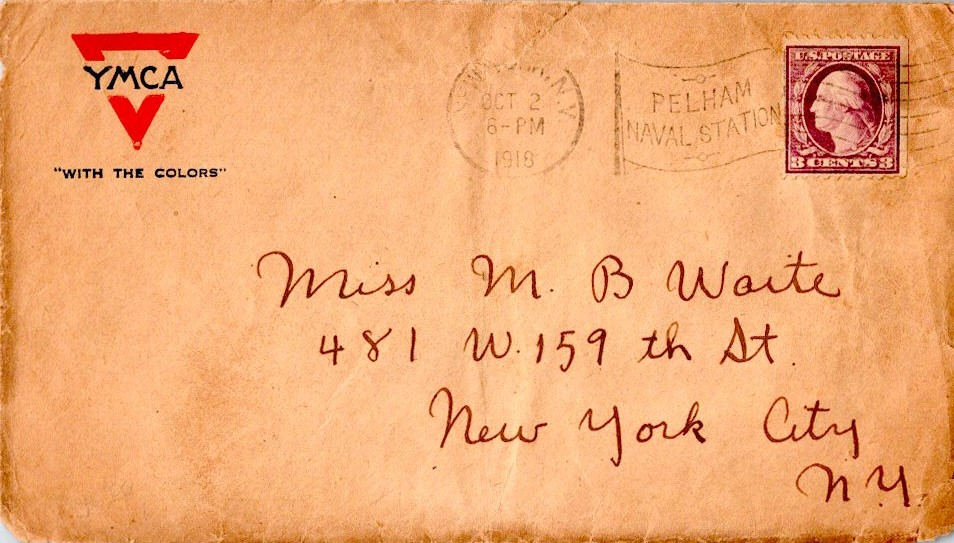 YMCA
"WITH THE COLORS"
NEW YORK, N.Y.
OCT 2
6-PM
1918
PELHAM
NAVAL STATION
U.S. POSTAGE
3 CENTS 3
Miss M. B Waite
481 W. 159 th St.
New York City
N.Y.